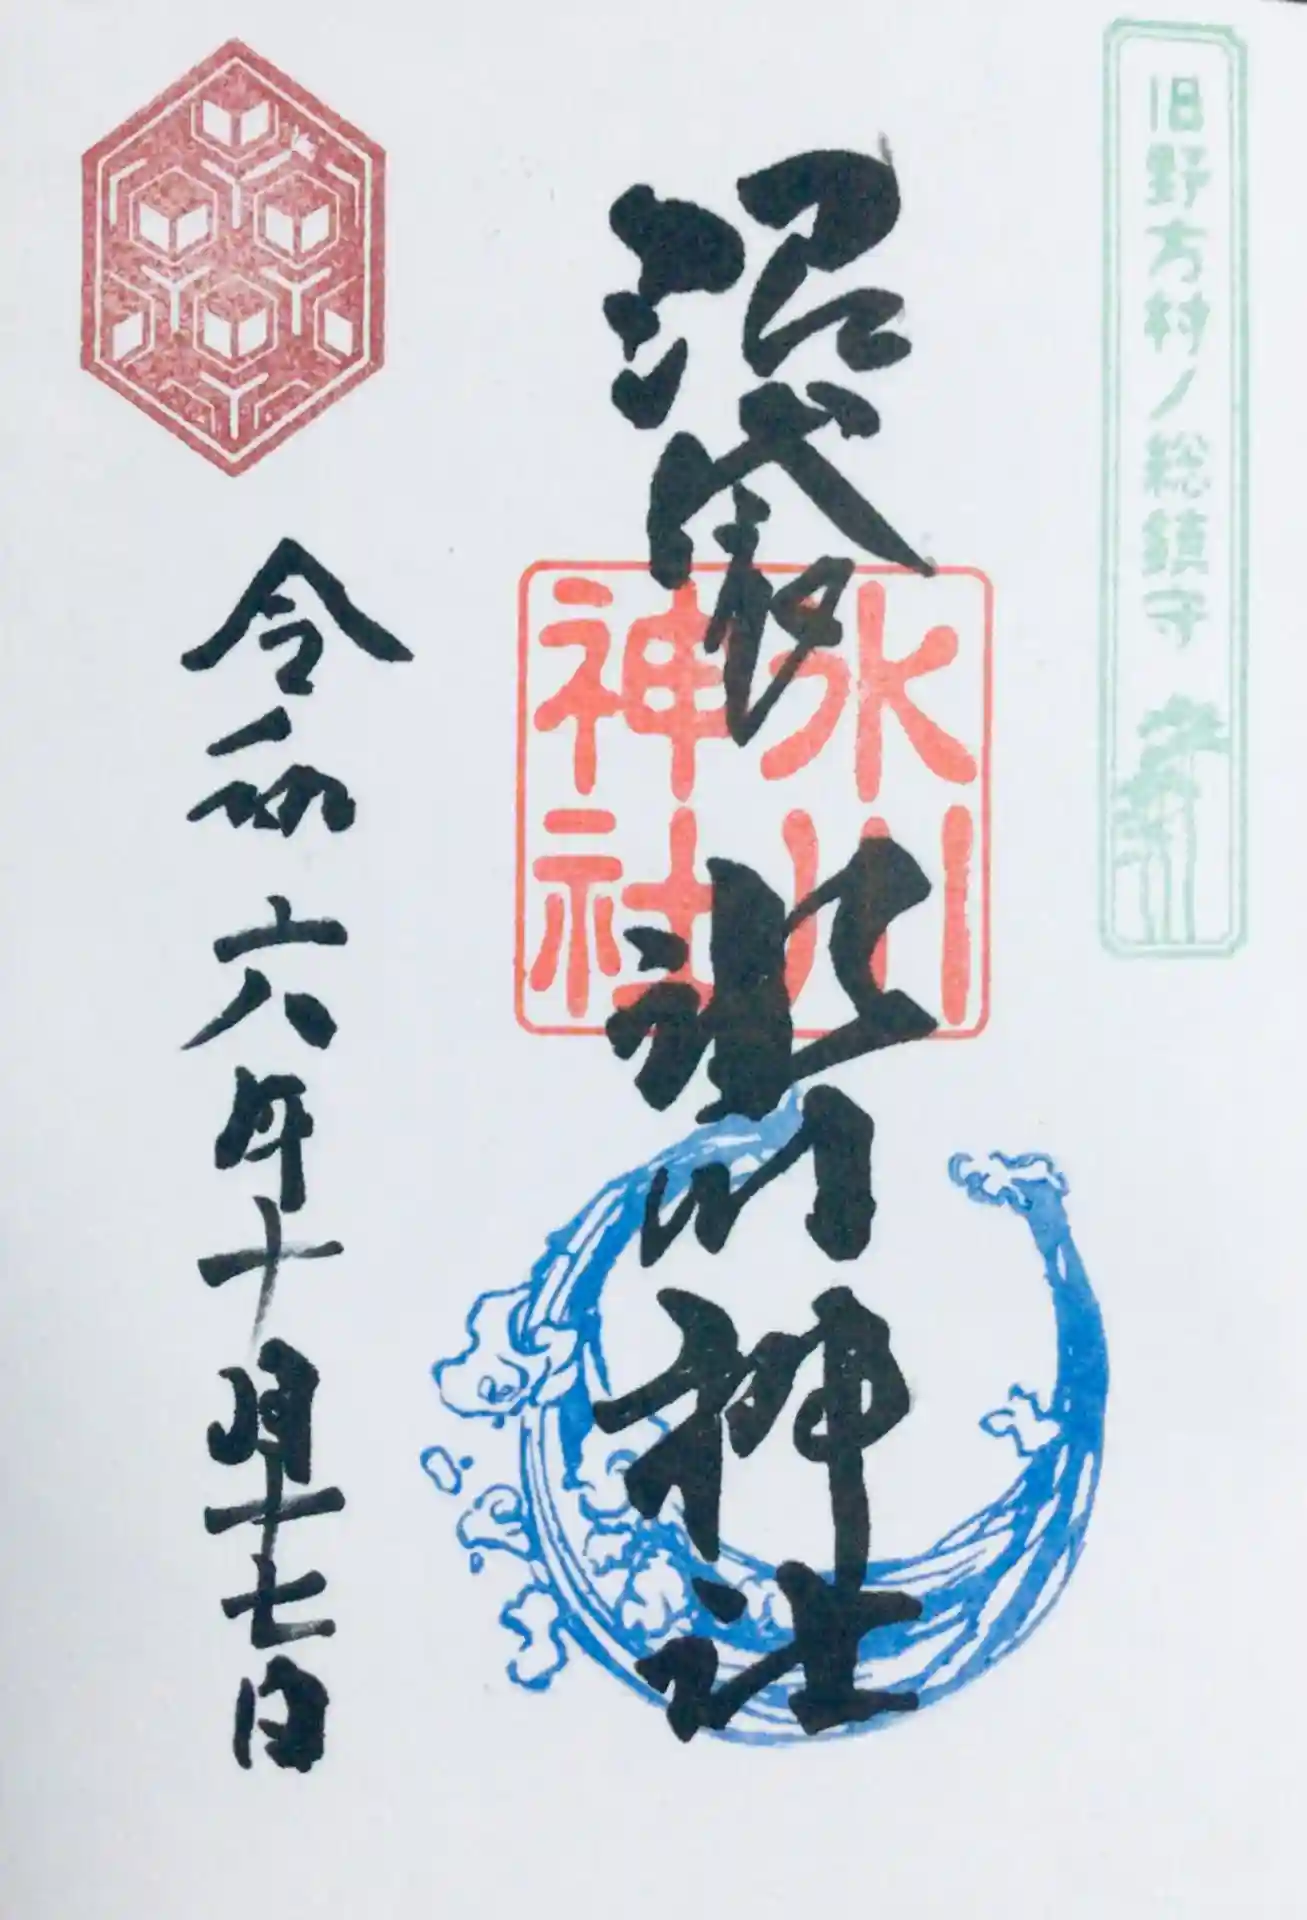 旧野方村ノ総鎮守
沼袋
氷川神社
氷川
神社
令和六年十月十七日